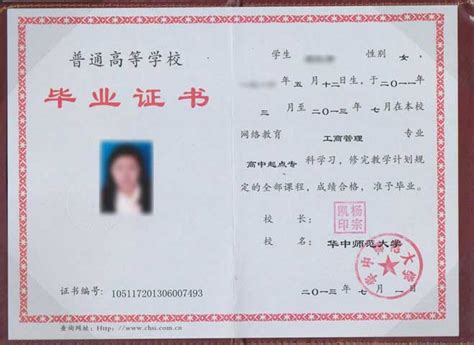 普通高等学校
毕业证书
证书编号: 105117201306007493
查询网址: Http: //www.chsi.com.cn
学生 性别 女,
年 五 月 十二 日生, 于 二〇一一 年
三 月至 二〇一三 年 七 月在本校
网络教育 工商管理 专业
高中起点专 科学习, 修完教学计划规
定的全部课程, 成绩合格, 准予毕业。
校 长: 杨宗凯印
校 名: 华中师范大学
二〇一三 年 七 月 一 日
华中师范大学